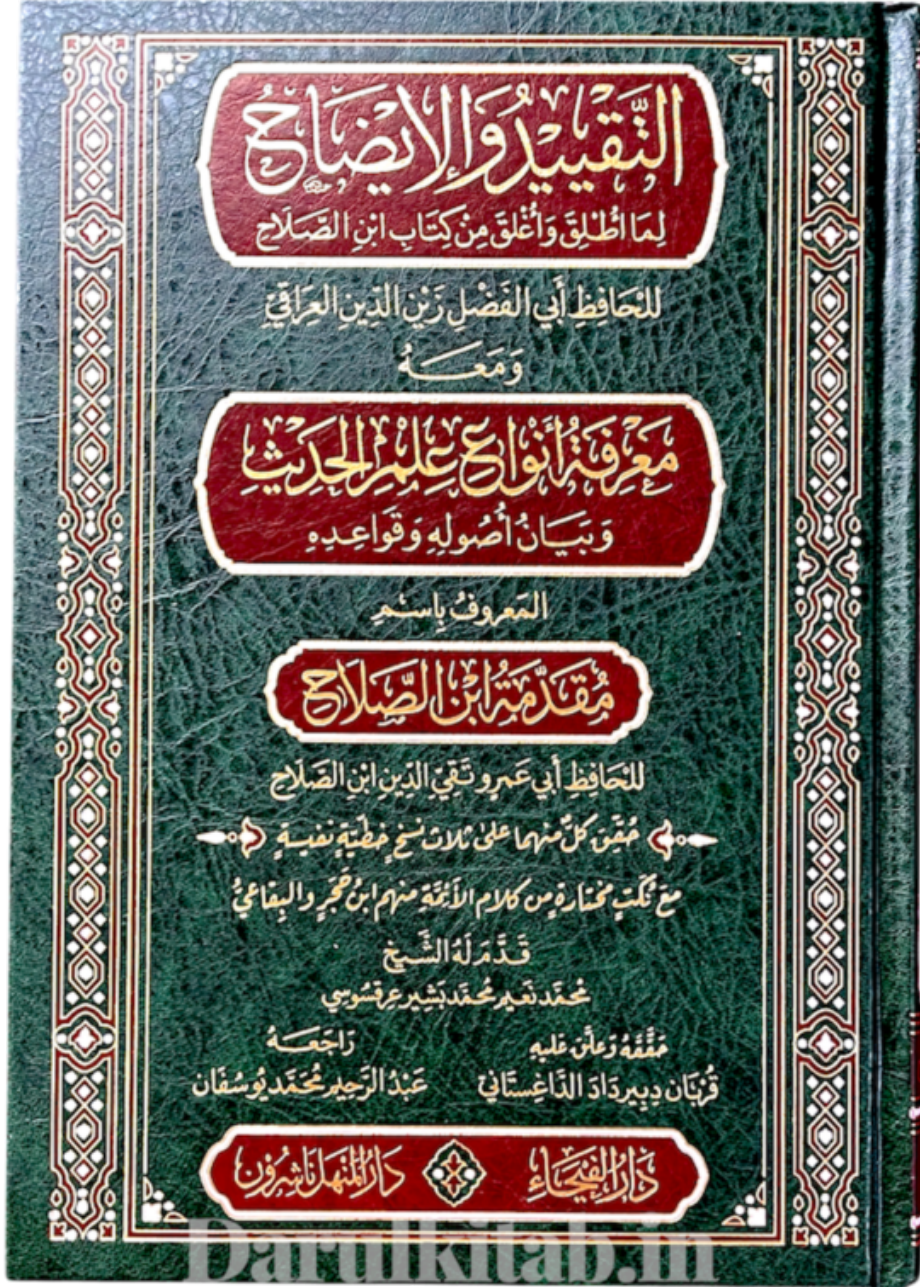 التَّقْيِيدُ وَالإِيضَاحُ
لِمَا أُطْلِقَ وَأُغْلِقَ مِنْ كِتَابِ ابْنِ الصَّلَاحِ
لِلْحَافِظِ أَبِي الفَضْلِ زَيْنِ الدِّينِ العِرَاقِيِّ
وَمَعَهُ
مَعْرِفَةُ أَنْوَاعِ عِلْمِ الحَدِيثِ
وَبَيَانُ أُصُولِهِ وَقَوَاعِدِهِ
المَعْرُوفُ بِاسْمِ
مُقَدِّمَةُ ابْنِ الصَّلَاحِ
لِلْحَافِظِ أَبِي عَمْرٍو تَقِيِّ الدِّينِ ابْنِ الصَّلَاحِ
حُقِّقَ كُلٌّ مِنْهُمَا عَلَى ثَلَاثِ نُسَخٍ خَطِّيَّةٍ نَفِيسَةٍ
مَعَ نُكَتٍ مُخْتَارَةٍ مِنْ كَلَامِ الأَئِمَّةِ مِنْهُم ابْنُ حَجَرٍ وَالبِقَاعِيُّ
قَدَّمَ لَهُ الشَّيْخ
مُحَمَّد نَعِيم مُحَمَّد بَشِير عِرقسُوسِي
حَقَّقَهُ وَعَلَّقَ عَلَيْهِ
قُرْبَان دِبِير دَادَ الدَّاغِسْتَانِيّ
رَاجَعَهُ
عَبْدُ الرَّحِيم مُحَمَّد يُوسُفَان
دَارُ الفَيْحَاءِ
دَارُ المَنْهَل نَاشِرُون
Darulkitab.in